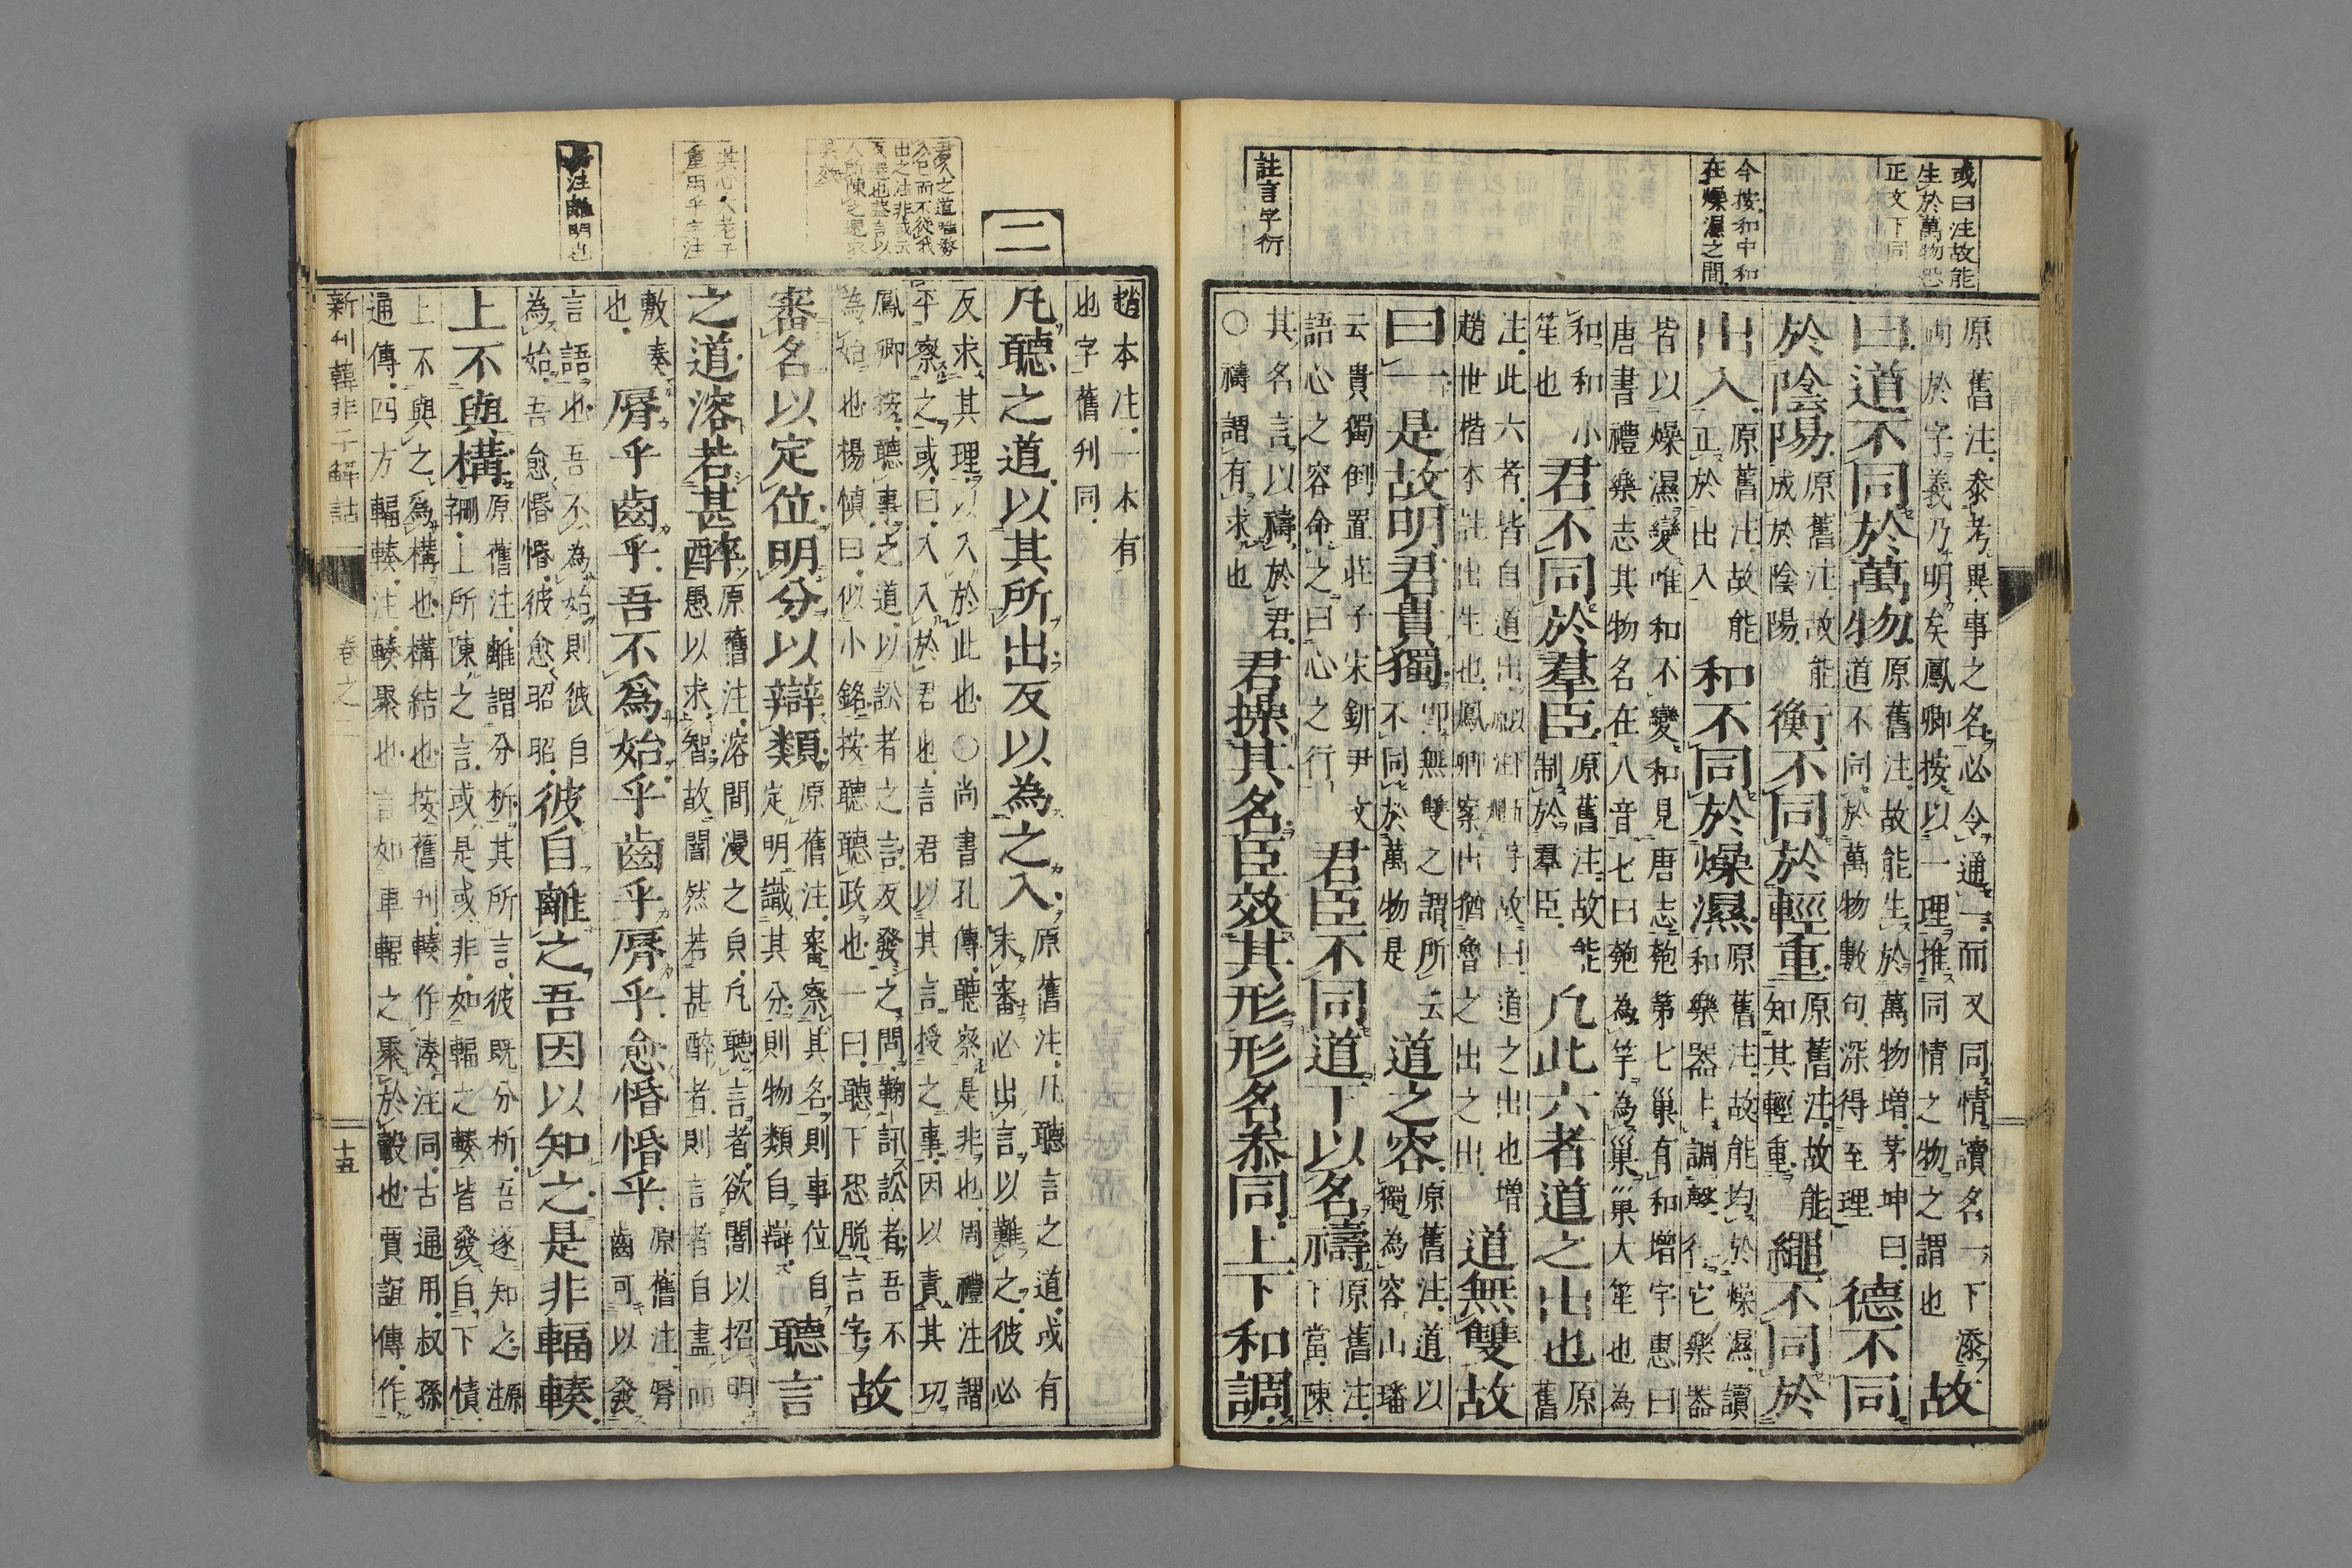 或曰注故能
生於萬物恐
正文下同
今按和中和
在燥濕之間
註言字衍
原舊注參考異事之名必令通一而又同情讀名一下添
於字義乃明矣鳳卿按以一理推同情之物之謂也
故
曰道不同於萬物
原舊注故能生於萬物增茅坤曰
道不同於萬物數句深得至理
德不同
於陰陽
原舊注故能
成於陰陽
衡不同於輕重
原舊注故能
知其輕重
繩不同於
出入
原舊注故能
正於出入
和不同於燥濕
原舊注故能均於燥濕讀
和樂器上調聲 它樂器
皆以燥濕變唯和不變和見唐志匏第七巢有和增字惠曰
唐書禮樂志其物名在八音七曰匏為竽為巢巢大笙也為
和和小
笙也
君不同於羣臣
原舊注故能
制於羣臣
凢此六者道之出也
原
舊
注此六者皆自道出 字故曰道之出也增
趙世楷本註出生也鳳卿案出猶魯之出之出
道無雙故
曰一是故明君貴獨
即無雙之謂所云
不同於萬物是
道之容
原舊注道以
獨為容山璠
云貴獨倒置莊子宋鈃尹文
語心之容命之曰心之行
君臣不同道下以名禱
原舊注
下當陳
其名言以禱於君
○禱謂有求也
君操其名臣效其形形名參同上下和調
二
其心 大老子
重用乎字注
注離明也
趙本注一本有
也字舊刋同
凢聽之道以其所出反以為之入
原舊注凡聽言之道或有
未審必出言以難之彼必
反求其理以入於此也○尚書孔傳聽察是非也周禮注謂
平察之或曰入入於君也言君以其言授之事因以責其功
鳳卿按聽事之道以訟者之言反發之問鞫訊訟者吾不
為始也楊慎曰似小銘按聽聽政也一曰聽下恐脱言字
故
審名以定位明分以辯類
原舊注審察其名則事位自
定明識其分則物類自辯
聽言
之道溶若甚醉
原舊注溶閒漫之㒵凢聽言者欲闇以招明
愚以求智故闇然若甚醉者則言者自盡而
敷奏
也
脣乎齒乎吾不為始乎齒乎脣乎愈惛惛乎
原舊注脣
齒可以發
言語也吾不為始則彼自
為始吾愈惛惛彼愈昭昭
彼自離之吾因以知之是非輻輳
上不與構
原舊注離謂分析其所言彼既分析吾遂知之
上所陳之言或是或非如輻之輳皆發自下情
原
注
上不與之為構也構結也按舊刋輳作湊注同古通用叔孫
通傳四方輻輳注輳聚也言如車輻之聚於轂也賈誼傳作
新刊韓非子解詁
卷之二
十五